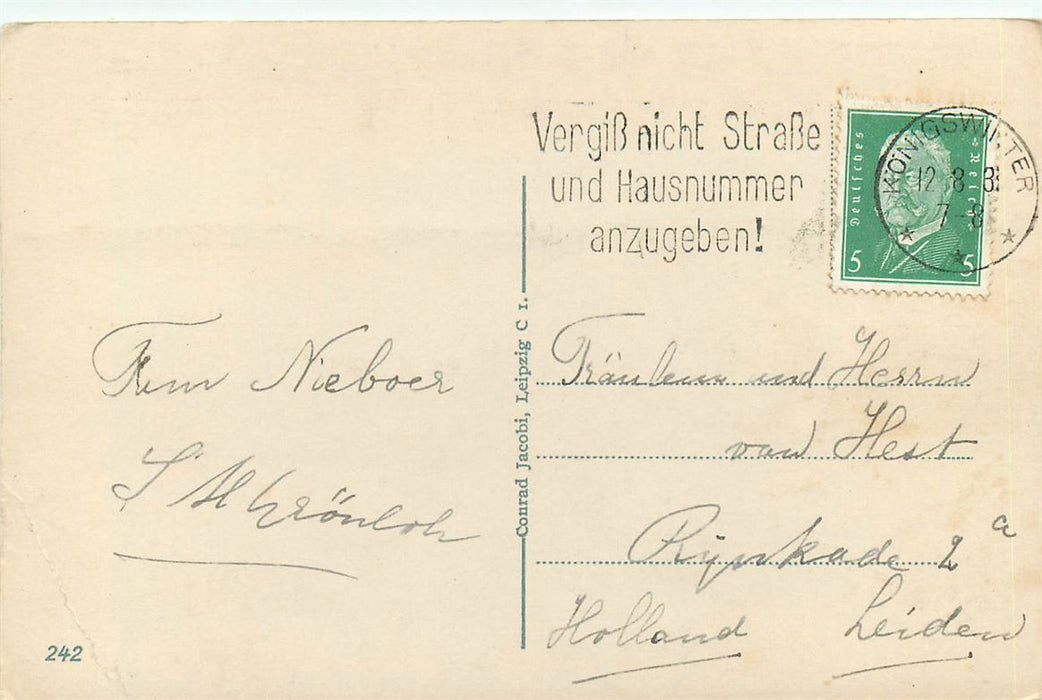 Vergiß nicht Straße
und Hausnummer
anzugeben!
KÖNIGSWINTER
12 8 3
7-8
Deutsches Reich
5 5
Nieboer
Conrad Jacobi, Leipzig C 1.
Fräulein und Herrn
van Hest
Rijnkade 2a
Holland Leiden
242